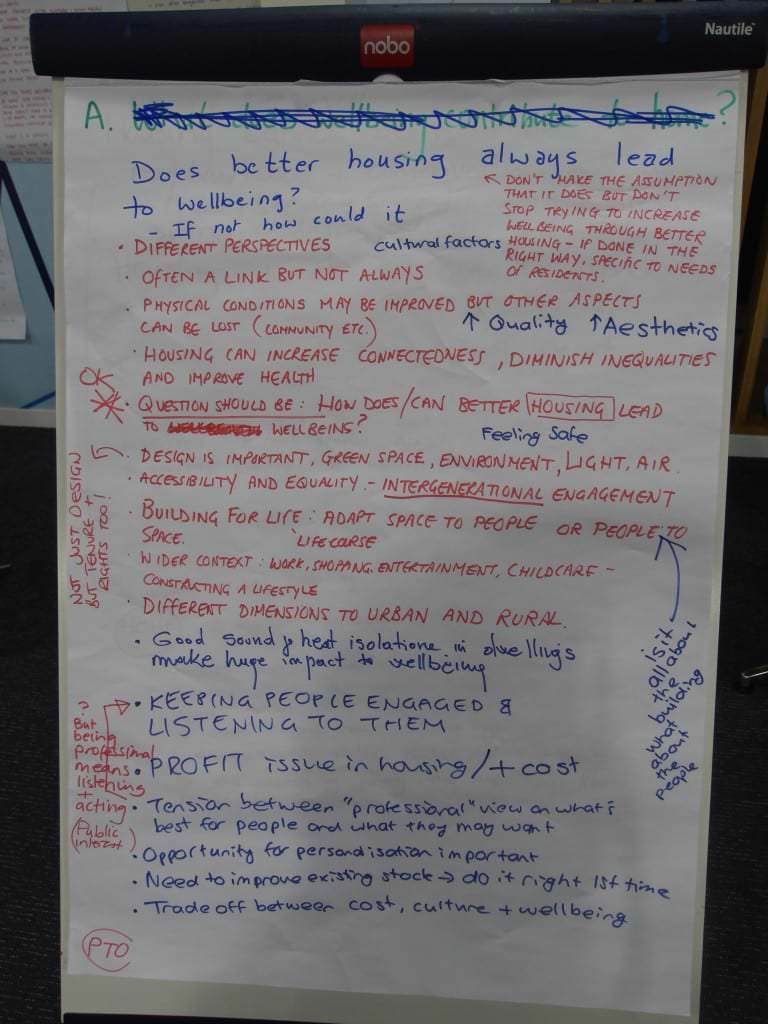 nobo
Nautile
A. ?
Does better housing always lead
to wellbeing?
- If not how could it
← DON'T MAKE THE ASSUMPTION
THAT IT DOES BUT DON'T
STOP TRYING TO INCREASE
WELLBEING THROUGH BETTER
HOUSING - IF DONE IN THE
RIGHT WAY, SPECIFIC TO NEEDS
OF RESIDENTS.
• DIFFERENT PERSPECTIVES
cultural factors
• OFTEN A LINK BUT NOT ALWAYS
• PHYSICAL CONDITIONS MAY BE IMPROVED BUT OTHER ASPECTS
CAN BE LOST (COMMUNITY ETC.)
↑ Quality ↑ Aesthetics
• HOUSING CAN INCREASE CONNECTEDNESS, DIMINISH INEQUALITIES
AND IMPROVE HEALTH
OK
• QUESTION SHOULD BE: HOW DOES/CAN BETTER HOUSING LEAD
TO WELLBEINS?
Feeling Safe
• DESIGN IS IMPORTANT, GREEN SPACE, ENVIRONMENT, LIGHT, AIR.
• ACCESSIBILITY AND EQUALITY - INTERGENERATIONAL ENGAGEMENT
NOT JUST DESIGN
BUT TENURE +
RIGHTS TOO!
• BUILDING FOR LIFE: ADAPT SPACE TO PEOPLE OR PEOPLE TO
SPACE.
LIFE COURSE
• WIDER CONTEXT: WORK, SHOPPING, ENTERTAINMENT, CHILDCARE -
CONSTRUCTING A LIFESTYLE
• DIFFERENT DIMENSIONS TO URBAN AND RURAL.
• Good sound & heat isolatione in dwellings
make huge impact to wellbeing
Is it
all about
the
building
what
about
the
people
• KEEPING PEOPLE ENGAGED &
LISTENING TO THEM
?
But
being
professional
means
listening
+
acting
(Public
interest)
• PROFIT issue in housing/+ cost
• Tension between "professional" view on what's
best for people and what they may want
• Opportunity for personalisation important
• Need to improve existing stock → do it right 1st time
• Trade off between cost, culture + wellbeing
PTO